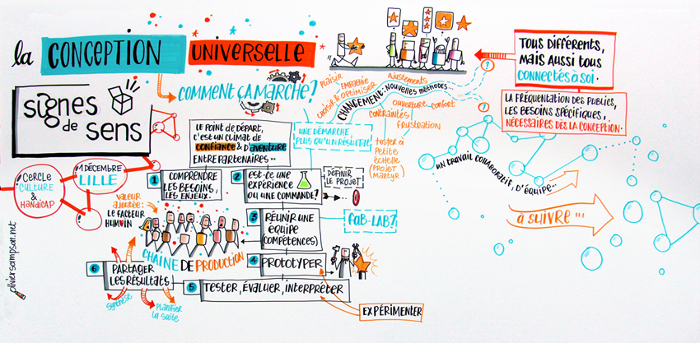 la
CONCEPTION
UNIVERSELLE
signes
de sens
CERCLE
CULTURE
& HANDICAP
1 DÉCEMBRE
LILLE
oliversampson.net
COMMENT ÇA MARCHE?
LE POINT DE DÉPART,
C'EST UN CLIMAT DE
CONFIANCE & D'AVENTURE
ENTRE PARTENAIRES...
UNE DÉMARCHE
PLUS QU'UN RÉSULTAT!
1 COMPRENDRE
LES BESOINS,
LES ENJEUX.
2 EST-CE UNE
EXPÉRIENCE
OU UNE COMMANDE?
DÉFINIR
LE PROJET
3 RÉUNIR UNE
ÉQUIPE
(COMPÉTENCES)
FAB-LAB?
4 PROTOTYPER
5 TESTER, ÉVALUER, INTERPRÉTER
EXPÉRIMENTER
6 PARTAGER
LES RÉSULTATS
SYNTHÈSE
PLANIFIER
LA SUITE
VALEUR
AJOUTÉE:
LE FACTEUR
HUMAIN
CHAÎNE DE PRODUCTION
PLAISIR
CHANGEMENT: NOUVELLES MÉTHODES
AJUSTEMENTS
OUVERTURE
CONFORT
CONTRAINTES
FRUSTRATION
TESTER À
PETITE
ÉCHELLE
(PROJET
MARTYR)
?
!
TOUS DIFFÉRENTS,
MAIS AUSSI TOUS
CONNECTÉS À SOI.
LA FRÉQUENTATION DES PUBLICS,
LES BESOINS SPÉCIFIQUES,
NÉCESSAIRES DÈS LA CONCEPTION.
UN TRAVAIL COLLABORATIF, D'ÉQUIPE
À SUIVRE...